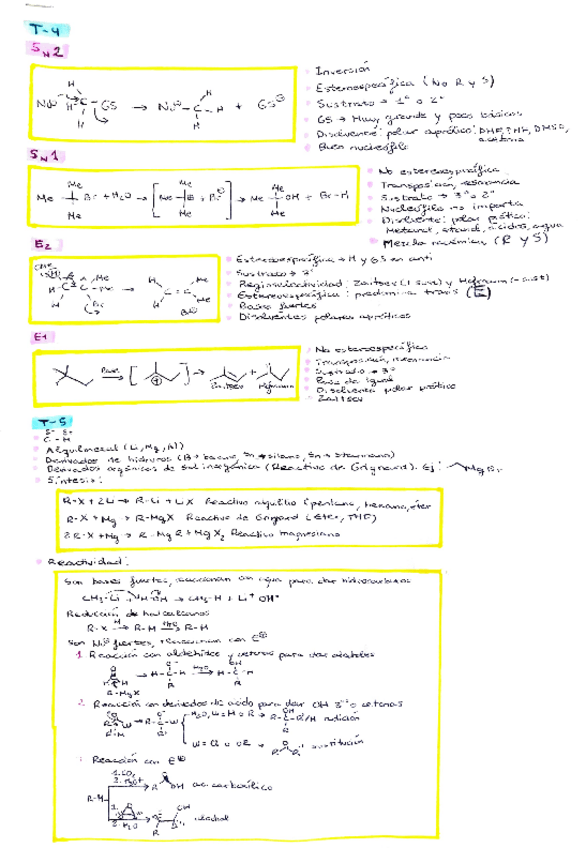 T-4
SN2
Nu⊖ H H C GS → Nu C H H + GS⊖
· Inversión
· Estereoespecífica (No R y S)
· Sustrato → 1º o 2º
· GS → Muy grande y poco básicos
· Disolvente: polar aprótico: DMF, THF, DMSO, acetona
· Buen nucleófilo
SN1
Me Me Br + H2O → [Me Me Br⊖] → Me Me OH + Br-H
Me Me Me
· No estereoespecífica
· Transposición, resonancia
· Sustrato → 3º o 2º
· Nucleófilo no importa
· Disolvente: polar prótico:
Metanol, etanol, ácidos, agua
· Mezcla racémica (R y S)
E2
· Estereoespecífica → H y GS en anti
· Sustrato → 3º
· Regioselectividad: Zaitsev (1 sust) y Hofmann (- sust)
· Estereoespecífica: predomina trans (E)
· Bases fuertes
· Disolventes polares apróticos
E1
Zaitsev Hofmann
· No estereoespecífica
· Transposición, resonancia
· Sustrato → 3º
· Base da igual
· Disolvente polar prótico
· Zaitsev
T-5
C - M
· Alquilmetal (Li, Mg, Al)
· Derivados de hidruros (B → borano, Sn → silano, Sn → stannano)
· Derivados orgánicos de sal inorgánica (Reactivo de Grignard). Ej: MgBr
· Síntesis:
R-X + 2Li → R-Li + LiX Reactivo alquilitio (pentano, hexano, éter
R-X + Mg → R-MgX Reactivo de Grignard (Eter, THF)
2R-X + Mg → R-MgR + MgX2 Reactivo magnesiano
· Reactividad:
Son bases fuertes, reaccionan con agua para dar hidrocarburos
CH3-Li + HOH → CH3-H + Li+ OH-
Reducción de haloalcanos
R-X → R-M → R-H
Son Nu⊖ fuertes, reaccionan con E⊕
1. Reacción con aldehídos y cetonas para dar alcoholes
R-MgX → H-C-H H2O → H-C-H
2. Reacción con derivados de ácido para dar OH 3º o cetonas
R-M → R-C-W H2O, W = H o R → R-C-R'/H adición
W = Cl o OR → sustitución
Reacción con E⊕
R-M 1. CO2 2. H3O+ R OH ac. carboxílico
1. 2. H2O OH alcohol